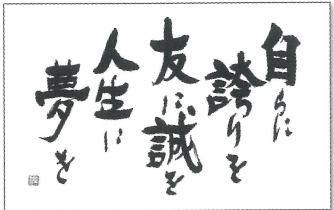 自らに
誇りを
友に
誠を
人生に
夢を